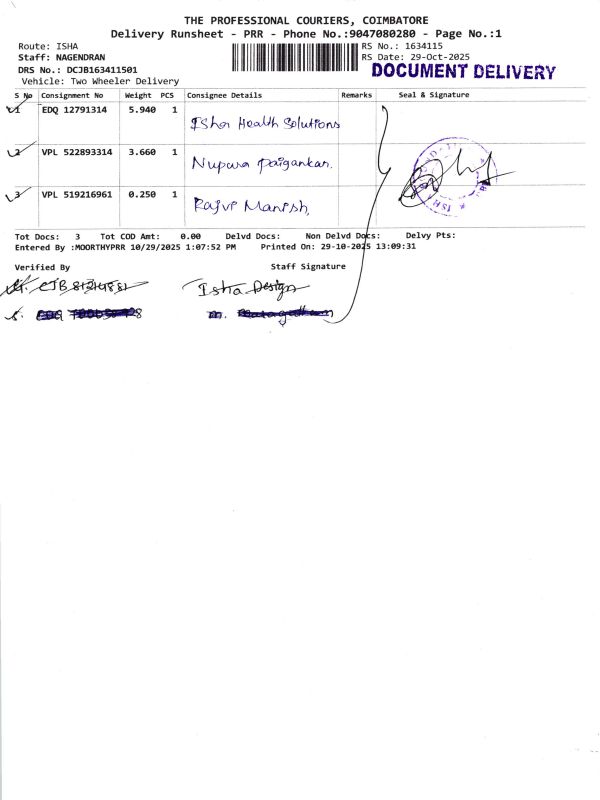 THE PROFESSIONAL COURIERS, COIMBATORE
Delivery Runsheet - PRR - Phone No.:9047080280 - Page No.:1
Route: ISHA RS No.: 1634115
Staff: NAGENDRAN RS Date: 29-Oct-2025
DRS No.: DCJB163411501 DOCUMENT DELIVERY
Vehicle: Two Wheeler Delivery
S No Consignment No Weight PCS Consignee Details Remarks Seal & Signature
1 EDQ 12791314 5.940 1 Isha Health Solutions
2 VPL 522893314 3.660 1 Nupura Paigankar.
3 VPL 519216961 0.250 1 Rajvi Manish,
Tot Docs: 3 Tot COD Amt: 0.00 Delvd Docs: Non Delvd Docs: Delvy Pts:
Entered By :MOORTHYPRR 10/29/2025 1:07:52 PM Printed On: 29-10-2025 13:09:31
Verified By Staff Signature
Isha Design